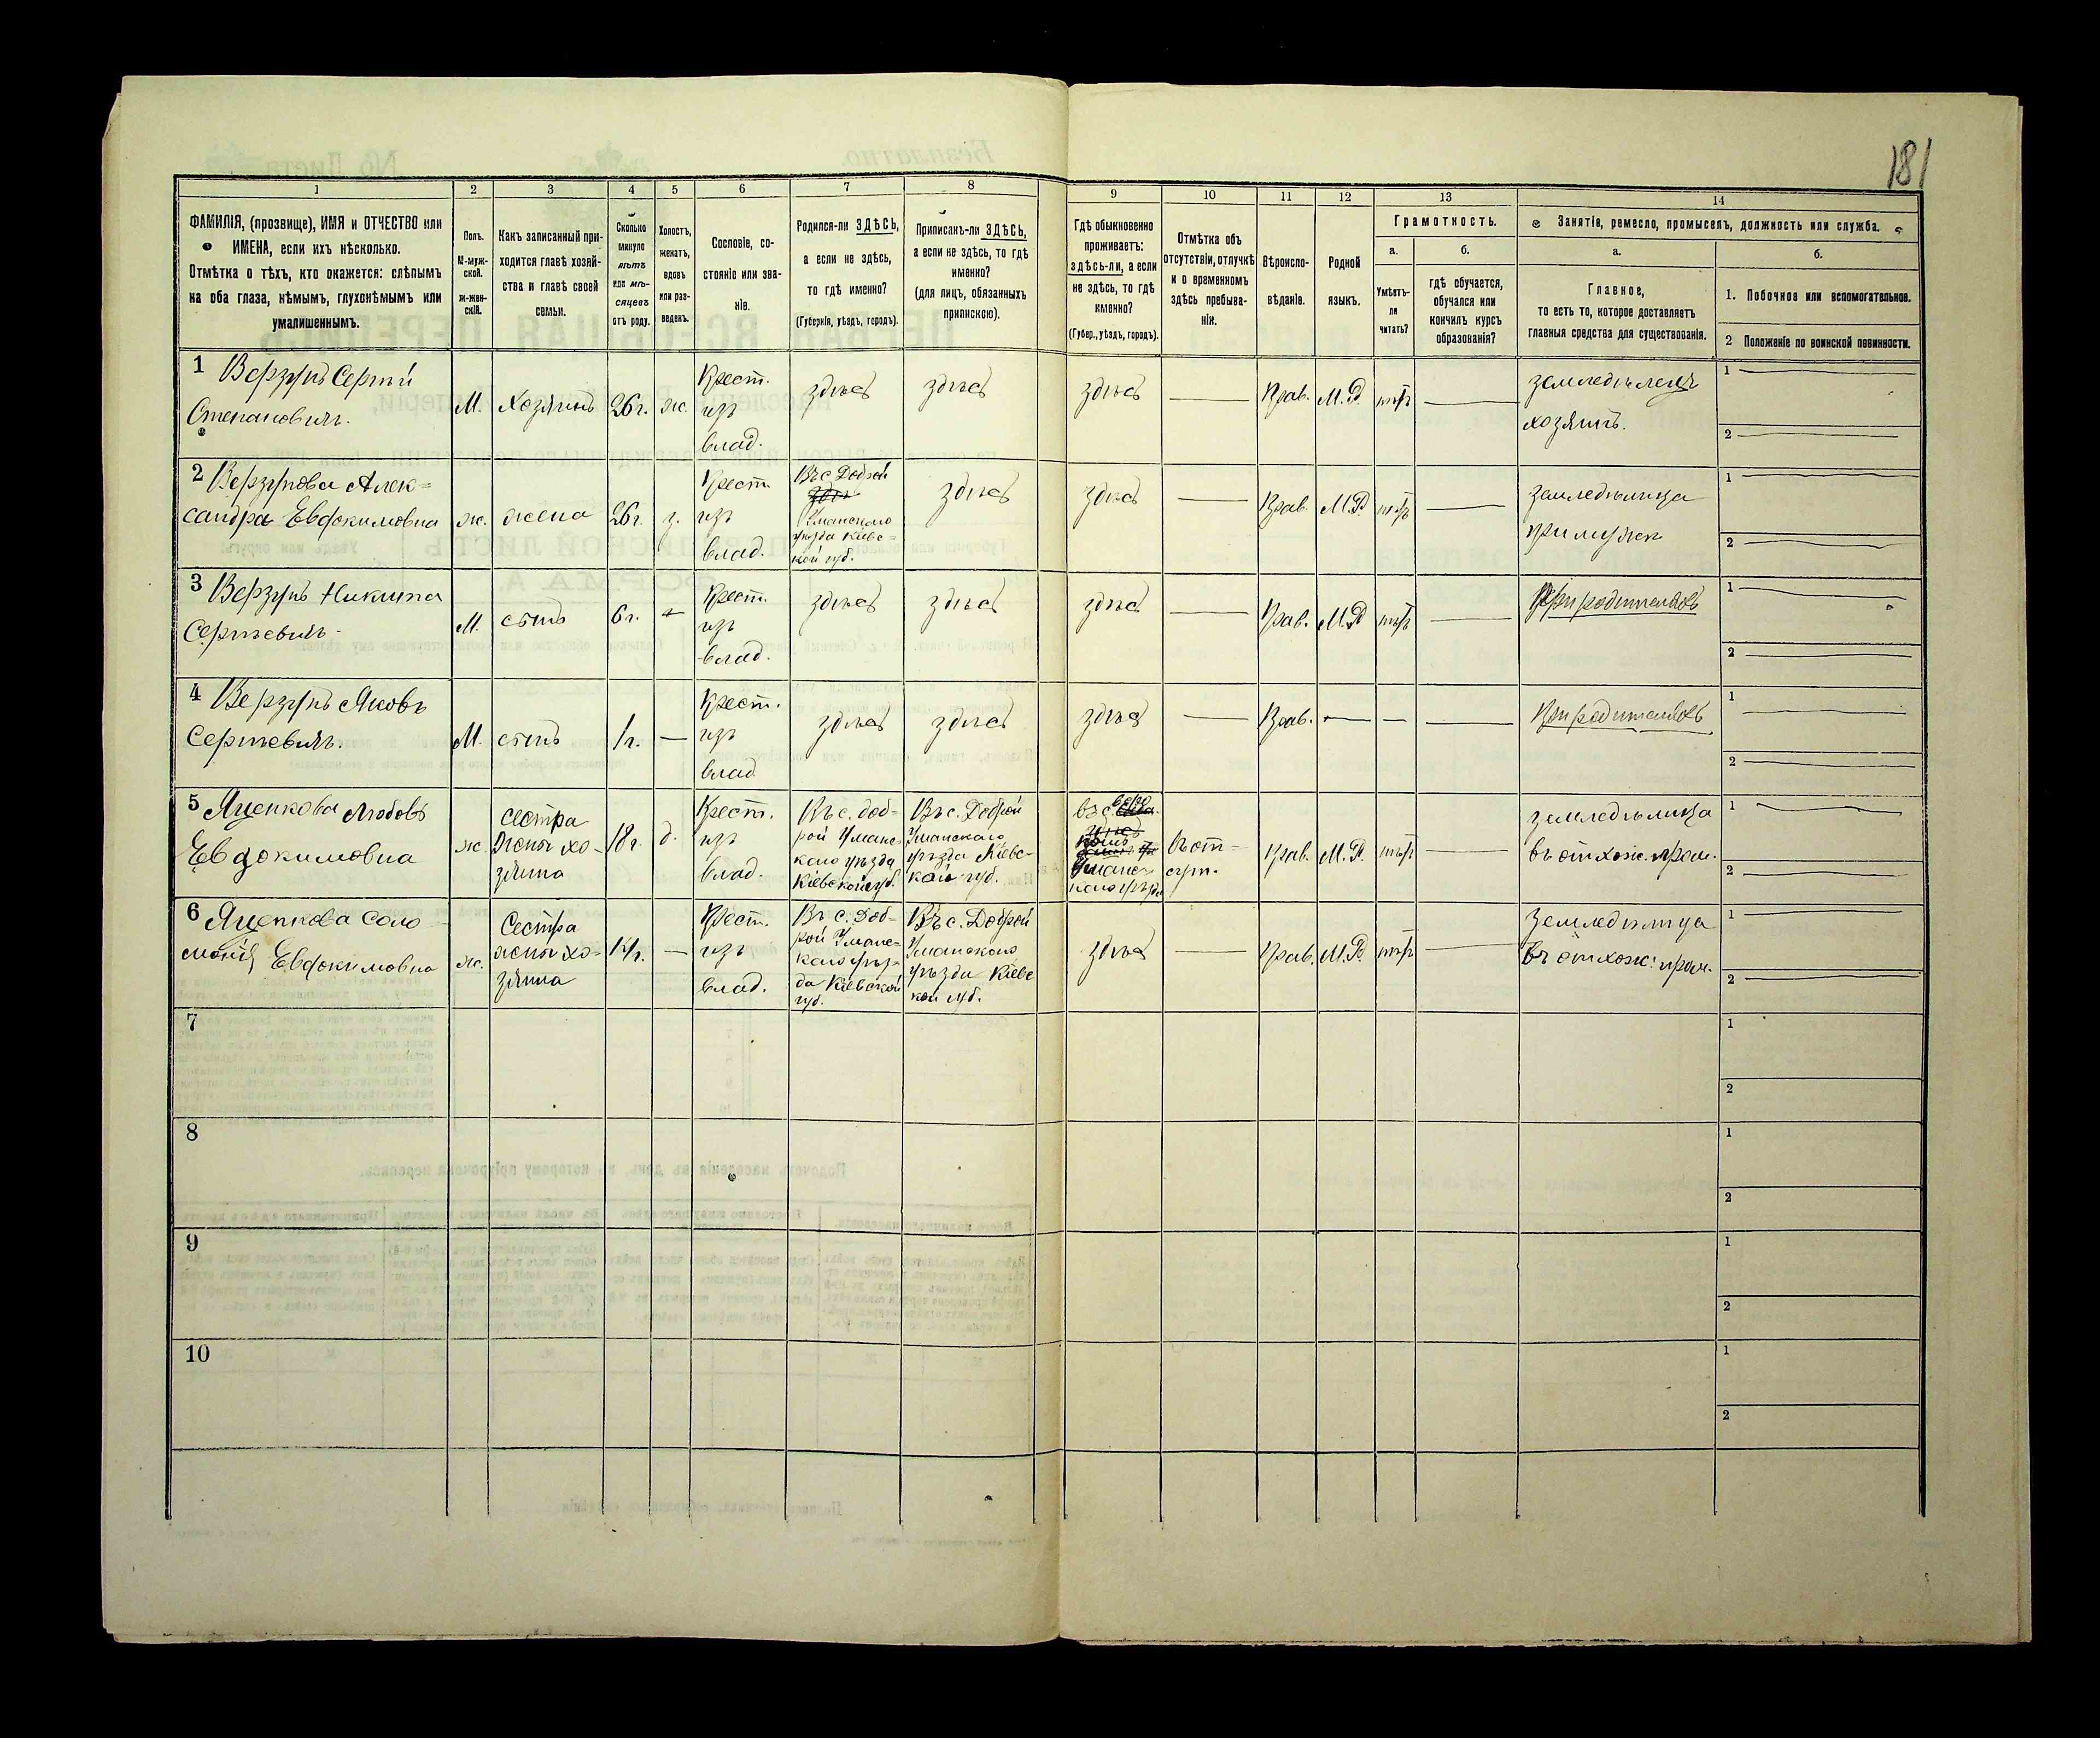 181
1
2
3
4
5
6
7
8
9
10
11
12
13
14
ФАМИЛІЯ, (прозвище), ИМЯ и ОТЧЕСТВО или
ИМЕНА, если ихъ нѣсколько.
Отмѣтка о тѣхъ, кто окажется: слѣпымъ
на оба глаза, нѣмымъ, глухонѣмымъ или
умалишеннымъ.
Полъ.
М-муж-
ской.
ж-жен-
скій.
Какъ записанный при-
ходится главѣ хозяй-
ства и главѣ своей
семьи.
Сколько
минуло
лѣтъ
или мѣ-
сяцевъ
отъ роду.
Холостъ,
женатъ,
вдовъ
или раз-
веденъ.
Сословіе, со-
стояніе или зва-
ніе.
Родился-ли ЗДѢСЬ,
а если не здѣсь,
то гдѣ именно?
(Губернія, уѣздъ, городъ).
Приписанъ-ли ЗДѢСЬ,
а если не здѣсь, то гдѣ
именно?
(для лицъ, обязанныхъ
припискою).
Гдѣ обыкновенно
проживаетъ:
здѣсь-ли, а если
не здѣсь, то гдѣ
именно?
(Губер., уѣздъ, городъ).
Отмѣтка объ
отсутствіи, отлучкѣ
и о временномъ
здѣсь пребыва-
ніи.
Вѣроиспо-
вѣданіе.
Родной
языкъ.
Грамотность.
а.
Умѣетъ-
ли
читать?
б.
гдѣ обучается,
обучался или
кончилъ курсъ
образованія?
Занятія, ремесло, промыселъ, должность или служба.
а.
Главное,
то есть то, которое доставляетъ
главныя средства для существованія.
б.
1. Побочное или вспомогательное.
2 Положеніе по воинской повинности.
1 Верзунъ Сергѣй
Степановичъ.
М.
Хозяинъ
26 г.
ж.
Крест.
изъ
влад.
здѣсь
здѣсь
здѣсь
Прав.
М.Р.
нѣтъ
земледѣлецъ
хозяинъ.
1
2
2 Верзунова Алек=
сандра Евдокимовна
ж.
жена
26 г.
з.
Крест.
изъ
влад.
Въ с. Доброй
Уманскаго
уѣзда Кіевс-
кой губ.
здѣсь
здѣсь
Прав.
М.Р.
нѣтъ
земледѣлица
при мужѣ
1
2
3 Верзунъ Никита
Сергѣевичъ.
М.
сынъ
6 г.
Крест.
изъ
влад.
здѣсь
здѣсь
здѣсь
Прав.
М.Р.
нѣтъ
При родителяхъ
1
2
4 Верзунъ Яковъ
Сергѣевичъ.
М.
сынъ
1 г.
—
Крест.
изъ
влад
здѣсь
здѣсь
здѣсь
Прав.
При родителяхъ
1
2
5 Яценкова Любовь
Евдокимовна
ж.
сестра
жены хо-
зяина
18 г.
д.
Крест.
изъ
влад.
Въ с. Доб-
рой Уманс-
каго уѣзда
Кіевской губ.
Въ с. Доброй
Уманскаго
уѣзда Кіевс-
кой губ.
въ с.
Уманс-
каго уѣзда
въ от-
сут.
Прав.
М.Р.
нѣтъ
земледѣлица
въ отхож. пром.
1
2
6 Яценкова Соло
монія Евдокимовна
ж.
Сестра
жены хо-
зяина
14 г.
—
Крест.
изъ
влад.
Въ с. Доб-
рой Уманс-
каго уѣз-
да Кіевской
губ.
Въ с. Доброй
Уманскаго
уѣзда Кіевс
кой губ.
здѣсь
Прав.
М.Р.
нѣтъ
Земледѣлица
Въ отхож. пром.
1
2
7
1
2
8
1
2
9
1
2
10
1
2